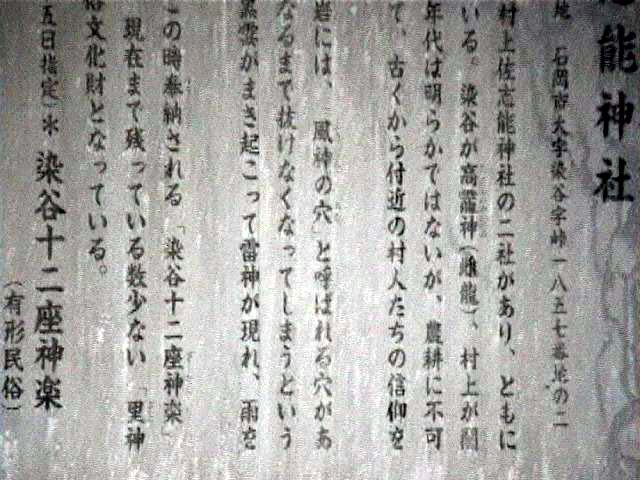 能神社
石岡市大字染谷字峠一八五七番地の二
村上佐志能神社の二社があり、ともに
いる。染谷が高龗神(雌龍)、村上が闇
年代は明らかではないが、農耕に不可
て、古くから付近の村人たちの信仰を
岩には、「風神の穴」と呼ばれる穴があ
なるまで抜けなくなってしまうという
黒雲がまき起こって雷神が現れ、雨を
この時奉納される「染谷十二座神楽」
現在まで残っている数少ない「里神
俗文化財となっている。
五日指定)＊染谷十二座神楽
(有形民俗)